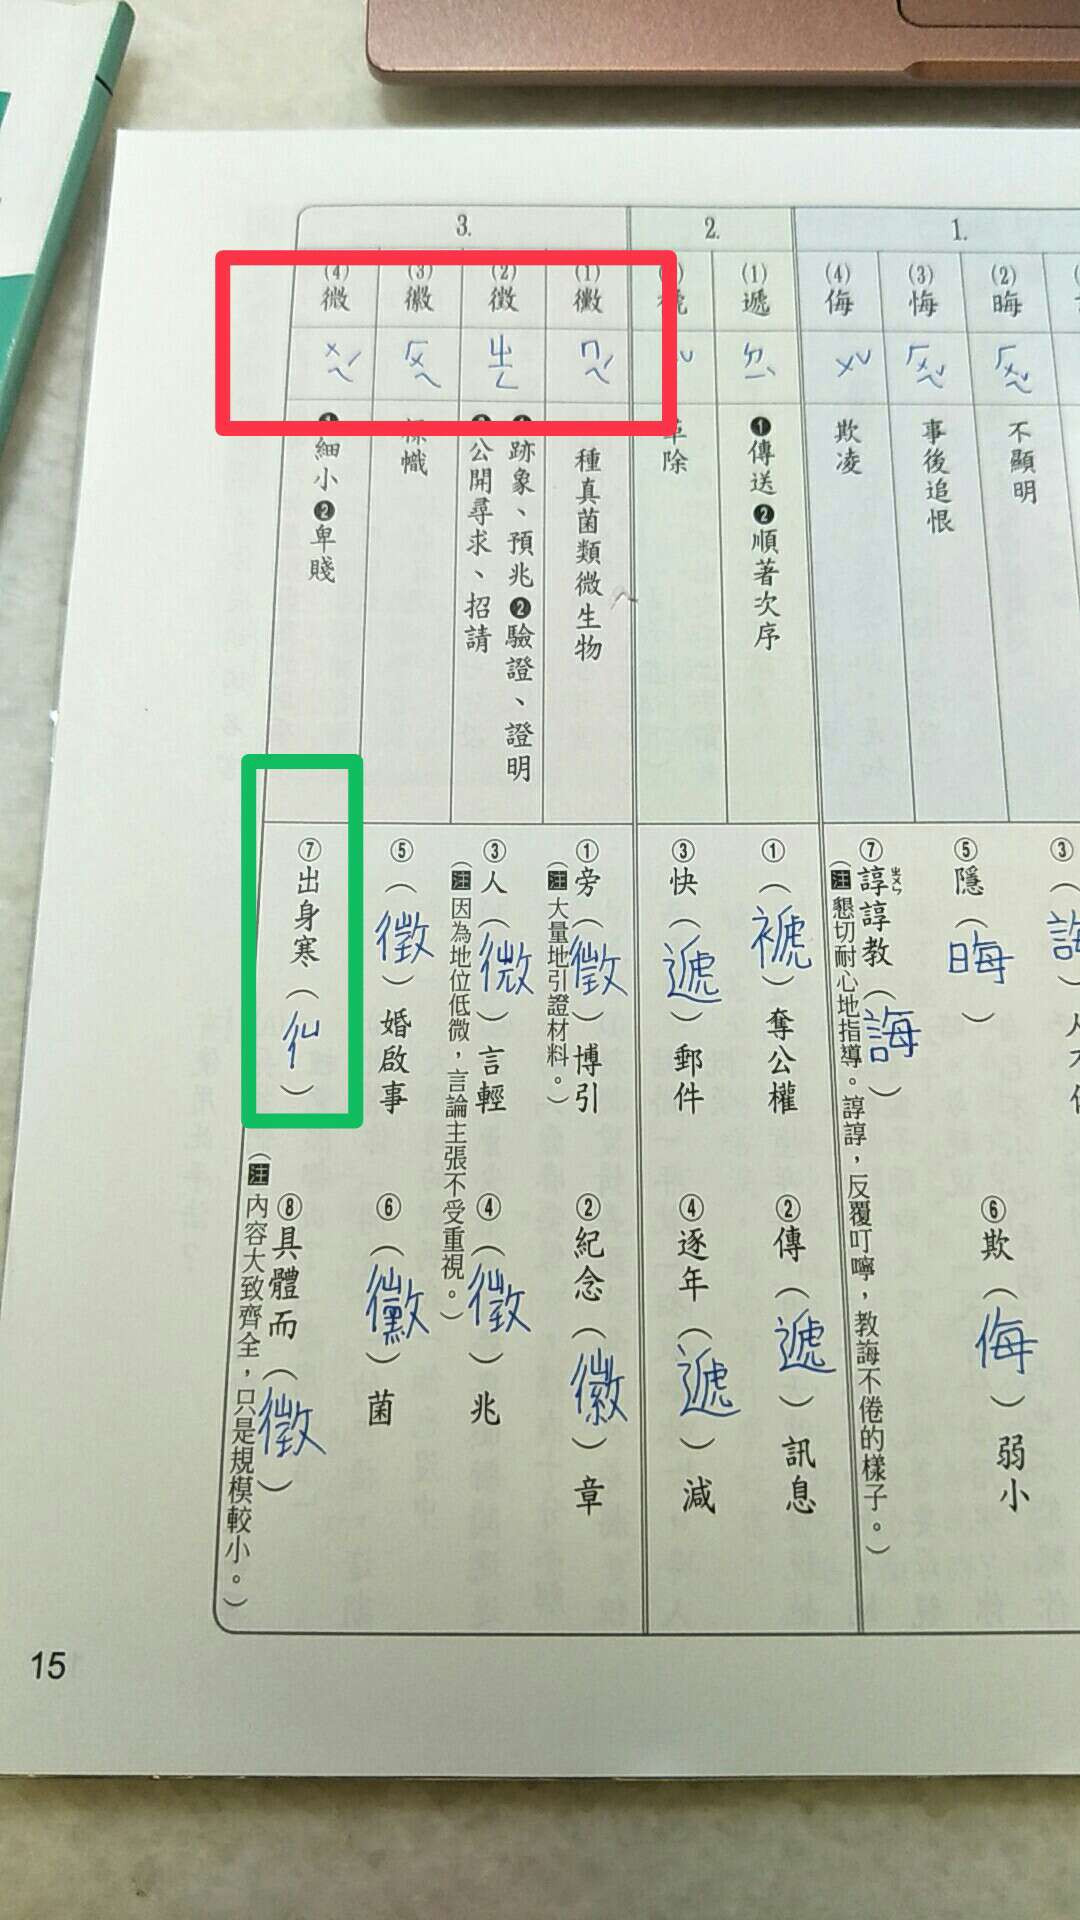 1.
(2)
晦
ㄏㄨㄟˋ
不顯明
(3)
悔
ㄏㄨㄟˇ
事後追恨
(4)
侮
ㄨˇ
欺凌
③
⑤隱(晦)
⑥欺(侮)弱小
⑦諄諄教(誨)
ㄓㄨㄣ
(注懇切耐心地指導。諄諄,反覆叮嚀,教誨不倦的樣子。)
2.
(1)
遞
ㄉㄧˋ
❶傳送❷順著次序
革除
①(褫)奪公權
②傳(遞)訊息
③快(遞)郵件
④逐年(遞)減
3.
(1)
黴
ㄇㄟˊ
一種真菌類微生物
(2)
徵
ㄓㄥ
❶跡象、預兆❷驗證、證明
❸公開尋求、招請
(3)
徽
ㄏㄨㄟ
標幟
(4)
微
ㄨㄟˊ
❶細小❷卑賤
①旁(徵)博引
(注大量地引證材料。)
②紀念(徽)章
③人(微)言輕
(注因為地位低微,言論主張不受重視。)
④(徵)兆
⑤(徵)婚啟事
⑥(黴)菌
⑦出身寒( )
⑧具體而(徵)
(注內容大致齊全,只是規模較小。)
15